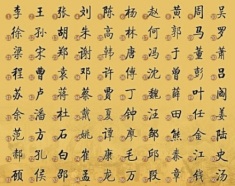 李 王 张 刘 陈 杨 赵 黄 周 吴
徐 孙 胡 朱 高 林 何 郭 马 罗
梁 宋 郑 谢 韩 唐 冯 于 董 萧
程 曹 袁 邓 许 傅 沈 曾 彭 吕
苏 卢 蒋 蔡 贾 丁 魏 薛 叶 阎
余 潘 杜 戴 夏 钟 汪 田 任 姜
范 方 石 姚 谭 廖 邹 熊 金 陆
郝 孔 白 崔 康 毛 邱 秦 江 史
顾 侯 邵 孟 龙 万 段 章 钱 汤